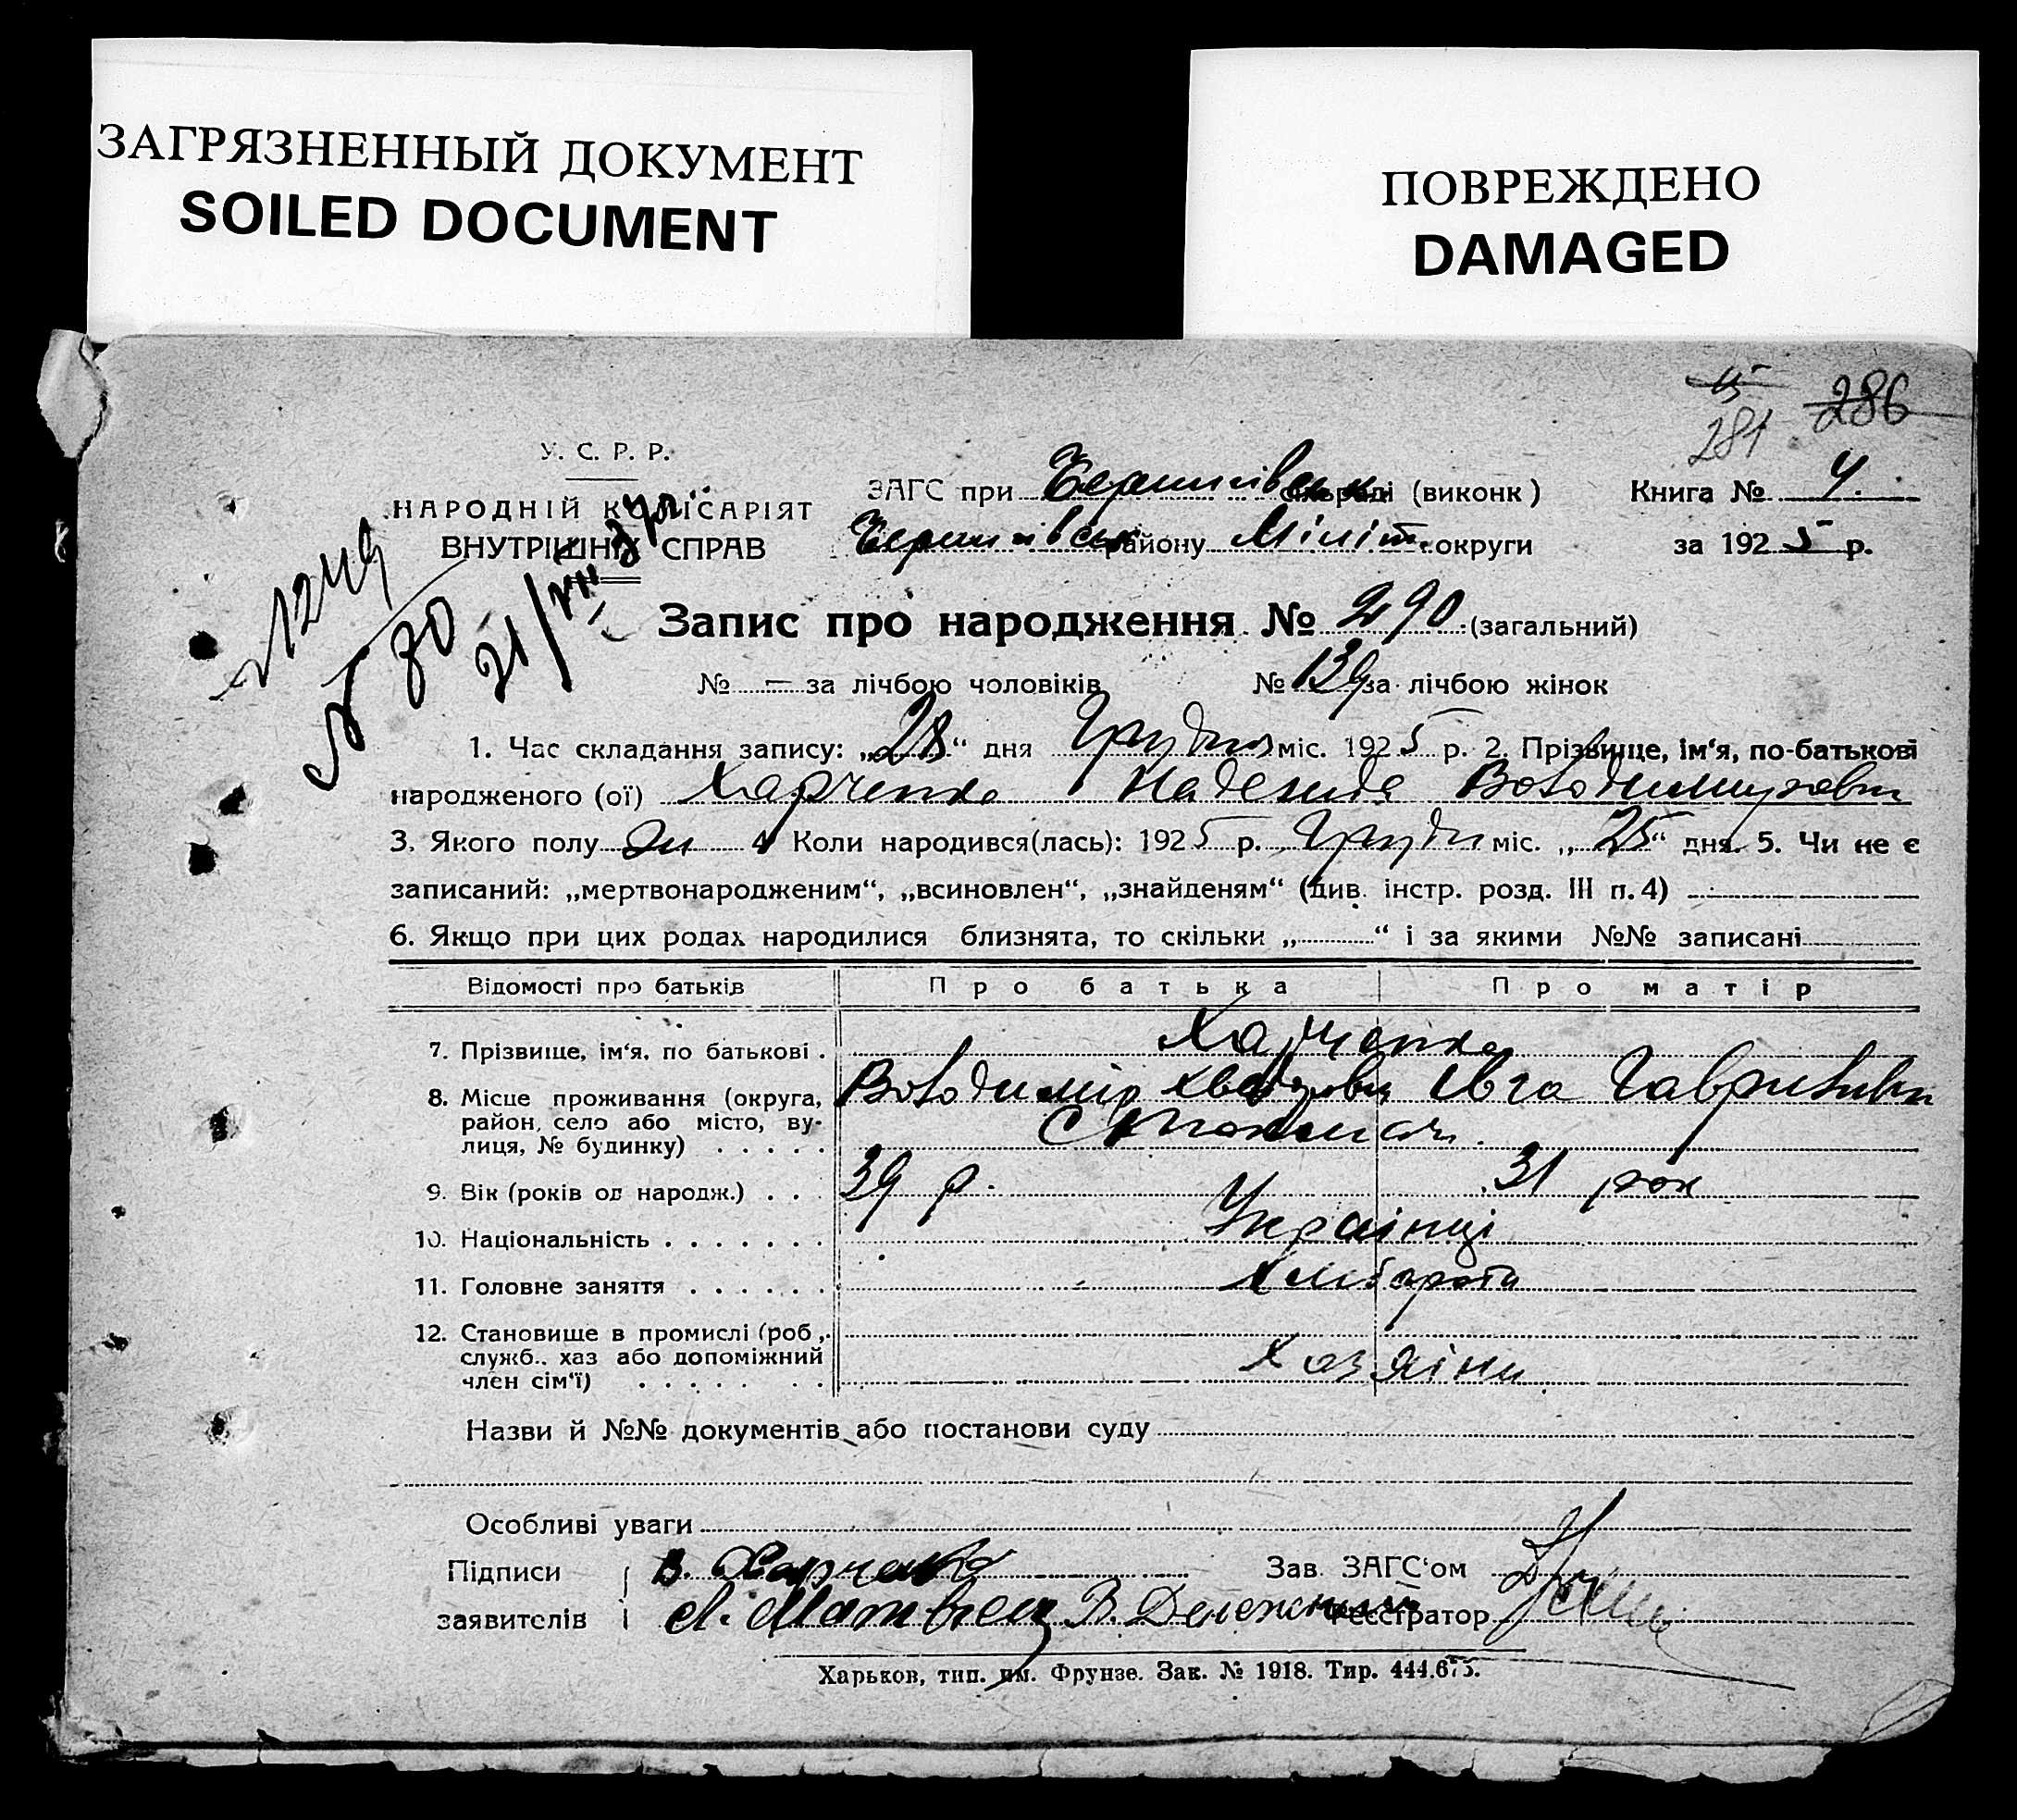 ЗАГРЯЗНЕННЫЙ ДОКУМЕНТ
SOILED DOCUMENT
ПОВРЕЖДЕНО
DAMAGED
281 286
У. С. Р. Р.
НАРОДНІЙ КОМІСАРІЯТ
ВНУТРІШНІХ СПРАВ
№ 80
ЗАГС при (виконк) Книга № 4.
району округи за 1925 р.
Запис про народження № 290 (загальний)
№ — за лічбою чоловіків № 139 за лічбою жінок
1. Час складання запису: „28“ дня Грудня міс. 1925 р. 2. Прізвище, ім‘я, по-батькові
народженого (ої) Харченко Надежда
3. Якого полу жін 4. Коли народився(лась): 1925 р. Грудня міс. „25“ дня. 5. Чи не є
записаний: „мертвонародженим“, „всиновлен“, „знайденям“ (див. інстр. розд. III п. 4)
6. Якщо при цих родах народилися близнята, то скільки „ “ і за якими №№ записані
Відомості про батьків Про батька Про матір
7. Прізвище, ім‘я, по батькові . Харченко
8. Місце проживання (округа, Володимір Ївга
район, село або місто, ву-
лиця, № будинку) . . . . .
9. Вік (років од народж.) . . . 39 р. 31 рок
10. Національність . . . . . . . Українці
11. Головне заняття . . . . . . Хлібороби
12. Становище в промислі (роб.,
служб., хаз або допоміжний хозяїни
член сім‘ї) . . . . . . .
Назви й №№ документів або постанови суду
Особливі уваги
Підписи В. Харченко Зав. ЗАГС‘ом
заявителів Реєстратор
Харьков, тип. им. Фрунзе. Зак. № 1918. Тир. 444.675.